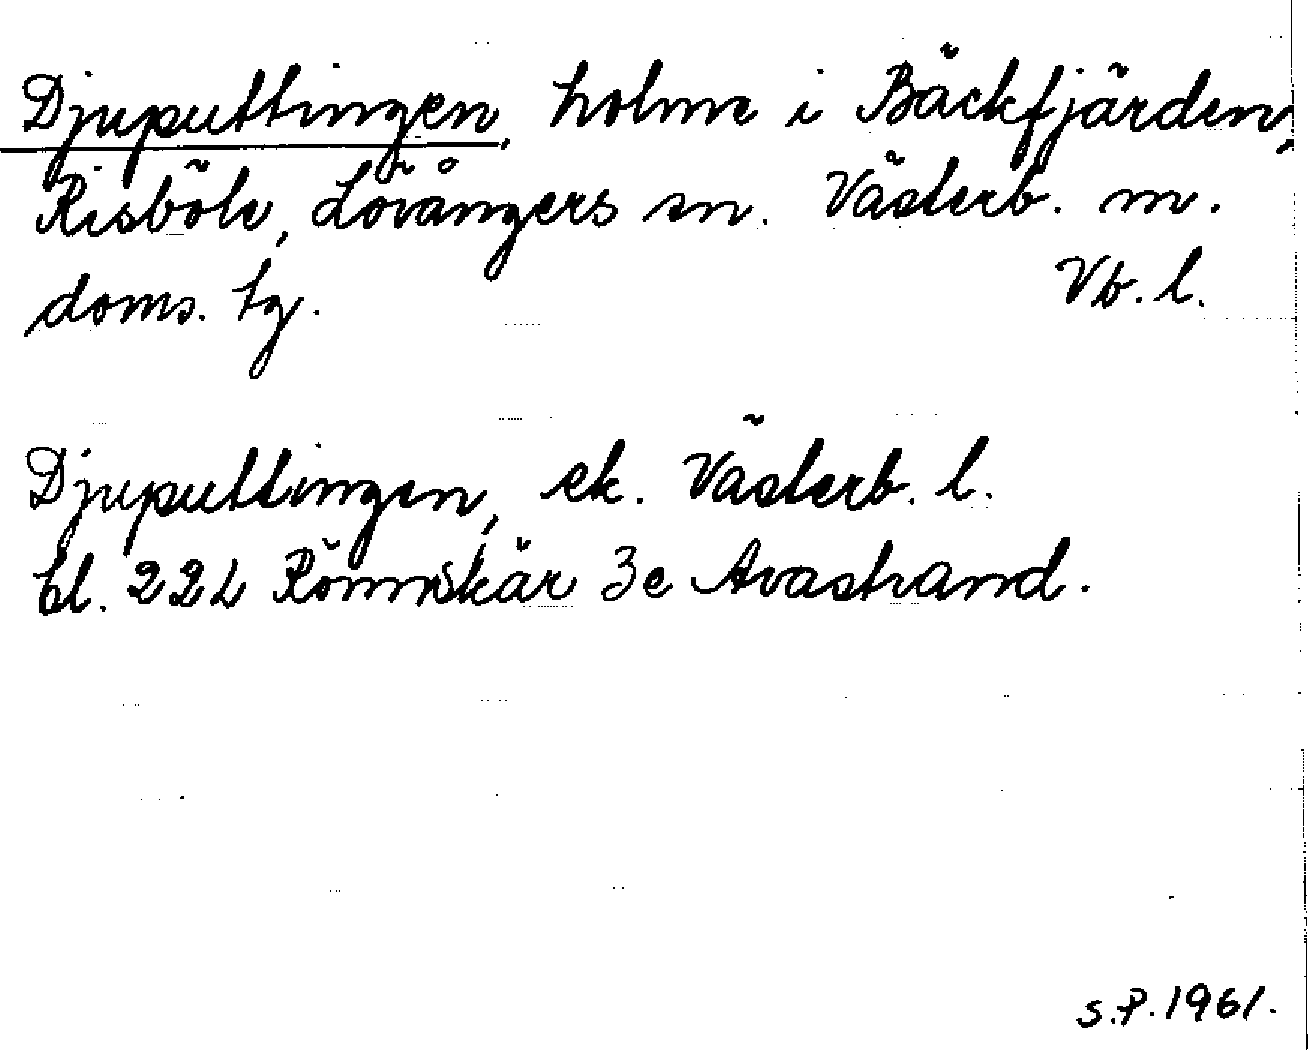 Djuputtingen, holme i Bäckfjärden,
Risböle, Lövångers sn. Västerb. m.
doms. tg. Vb. l.
Djuputtingen, ek. Västerb. l.
bl. 22L Rönnskär 3e Avastrand.
S.P. 1961.